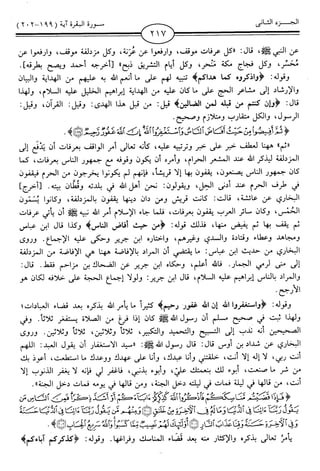 الجـــزء الثـــانى
سورة البقرة آية (١٩٩-٢٠٢)
٢١٧
عن النبي ﷺ، قال: «كل عرفات موقف، وارفعوا عن عُرَنة، وكل مزدلفة موقف، وارفعوا عن
مُحَسّر، وكل فجاج مكة مَنْحر، وكل أيام التشريق ذبح»
وقوله: ﴿واذكروه كما هداكم﴾ تنبيه لهم على ما أنعم الله به عليهم من الهداية والبيان
والإرشاد إلى مشاعر الحج على ما كان عليه من الهداية إبراهيم الخليل عليه السلام، ولهذا
قال: ﴿وإن كنتم من قبله لمن الضالين﴾ قيل: من قبل هذا الهدى؛ وقيل: القرآن، وقيل:
الرسول، والكل متقارب ومتلازم وصحيح.
﴿ثُمَّ أَفِيضُوا مِنْ حَيْثُ أَفَاضَ النَّاسُ وَاسْتَغْفِرُوا اللَّهَ إِنَّ اللَّهَ غَفُورٌ رَحِيمٌ﴾.
«ثم» ههنا لعطف خبر على خبر وترتيبه عليه، كأنه تعالى أمر الواقف بعرفات أن يَدْفع إلى
المزدلفة ليذكر الله عند المشعر الحرام، وأمره أن يكون وقوفه مع جمهور الناس بعرفات، كما
كان جمهور الناس يصنعون، يقفون بها إلا قريشاً، فإنهم لم يكونوا يخرجون من الحرم فيقفون
في طرف الحرم عند أدنى الحِل، ويقولون: نحن أهل الله في بلدته وقُطَّان بيته.
البخاري عن عائشة، قالت: كانت قريش ومن دان دينها يقفون بالمزدلفة، وكانوا يُسَمّون
الحُمْس، وكان سائر العرب يقفون بعرفات، فلما جاء الإسلام أمر الله نبيه ﷺ أن يأتي عرفات
ثم يقف بها ثم يفيض منها، فذلك قوله: ﴿من حيث أفاض الناس﴾ وكذا قال ابن عباس
ومجاهد وعطاء وقتادة والسدي وغيرهم، واختاره ابن جرير وحكى عليه الإجماع. وروى
البخاري من حديث ابن عباس: ما يقتضي أن المراد بالإفاضة ههنا هي الإفاضة من المزدلفة
إلى منى لرمي الجمار. فالله أعلم، وحكاه ابن جرير عن الضحاك بن مزاحم فقط. قال:
والمراد بالناس إبراهيم عليه السلام، قال ابن جرير: ولولا إجماع الحجة على خلافه لكان هو
الأرجح.
وقوله: ﴿واستغفروا الله إن الله غفور رحيم﴾ كثيراً ما يأمر الله بذكره بعد قضاء العبادات؛
ولهذا ثبت في صحيح مسلم أن رسول الله ﷺ كان إذا فرغ من الصلاة يستغفر ثلاثاً. وفي
الصحيحين أنه ندب إلى التسبيح والتحميد والتكبير، ثلاثاً وثلاثين، ثلاثاً وثلاثين. وروى
البخاري عن شداد بن أوس قال: قال رسول الله ﷺ: «سيد الاستغفار أن يقول العبد: اللهم
أنت ربي، لا إله إلا أنت، خلقتني وأنا عبدك، وأنا على عهدك ووعدك ما استطعت، أعوذ بك
من شر ما صنعت، أبوء لك بنعمتك عليّ، وأبوء بذنبي، فاغفر لي فإنه لا يغفر الذنوب إلا
أنت، من قالها في ليلة فمات في ليلته دخل الجنة، ومن قالها في يومه فمات دخل الجنة».
يأمرُ تعالى بذكره والإكثار منه بعد قضاء المناسك وفراغها. وقوله: ﴿كذكركم آباءكم﴾